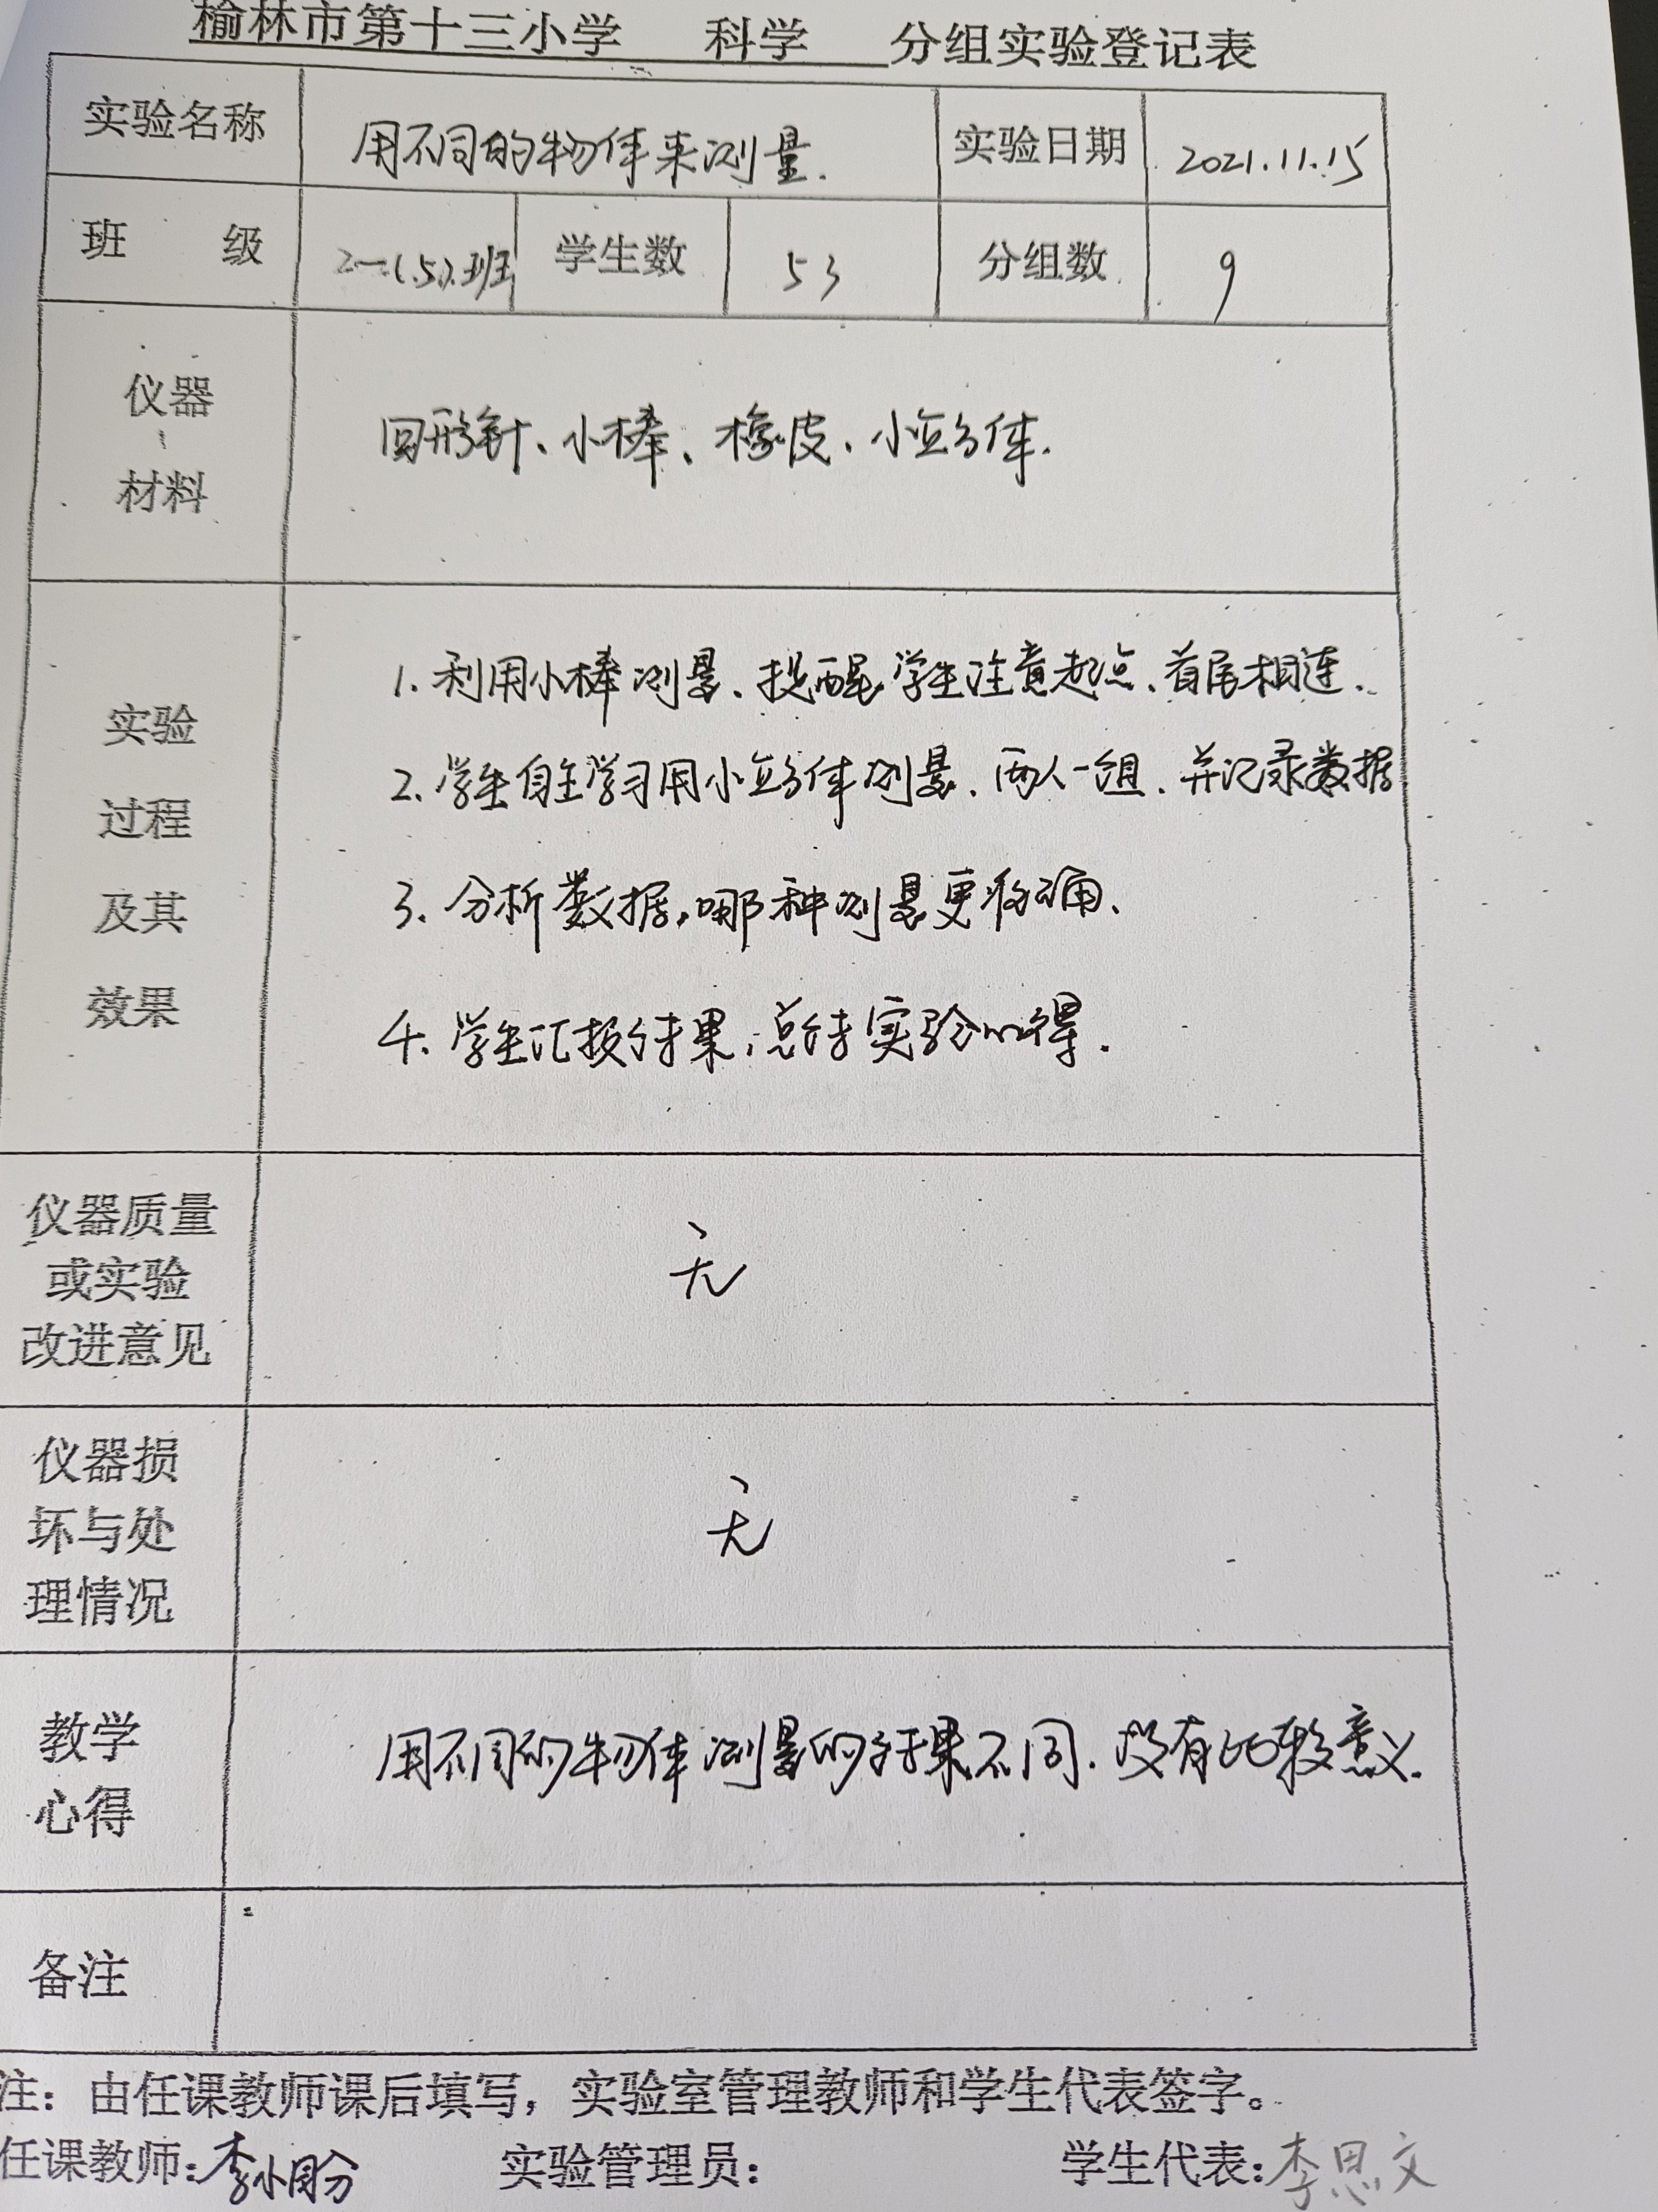 榆林市第十三小学 科学 分组实验登记表
实验名称 用不同的物体来测量. 实验日期 2021.11.15
班 级 (5).班 学生数 53 分组数 9
仪器
材料
回形针、小棒、橡皮、小立方体.
实验
过程
及其
效果
1. 利用小棒测量、提醒学生注意起点、首尾相连.
2. 学生自主学习用小立方体测量、两人一组、并记录数据
3. 分析数据,哪种测量更准确.
4. 学生汇报结果,总结实验心得.
仪器质量
或实验
改进意见
无
仪器损
坏与处
理情况
无
教学
心得
用不同的物体测量的结果不同.没有比较意义.
备注
注：由任课教师课后填写，实验室管理教师和学生代表签字。
任课教师:李小盼 实验管理员: 学生代表:李思文